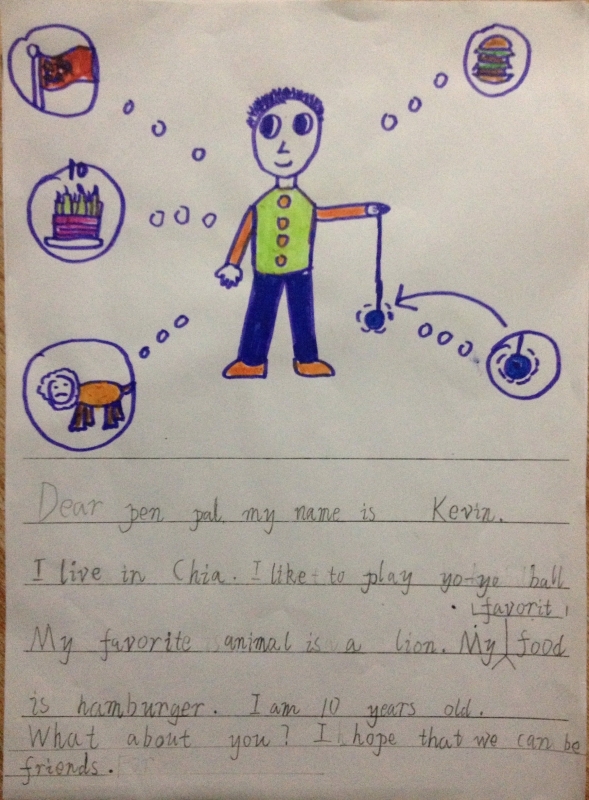 10
Dear pen pal, my name is Kevin.
I live in Chia. I like to play yo-ye ball
favorit
My favorite animal is a lion. My food
is hamburger. I am 10 years old.
What about you? I hope that we can be
friends.